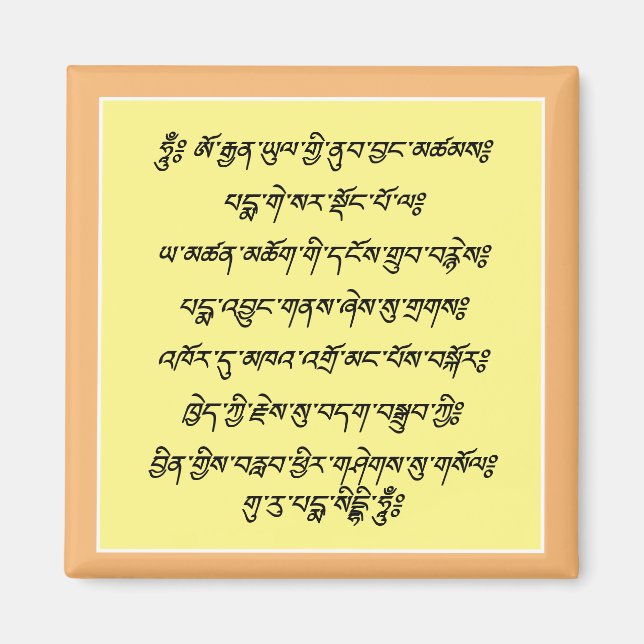 ཧཱུྃ༔ ཨོ་རྒྱན་ཡུལ་གྱི་ནུབ་བྱང་མཚམས༔
པདྨ་གེ་སར་སྡོང་པོ་ལ༔
ཡ་མཚན་མཆོག་གི་དངོས་གྲུབ་བརྙེས༔
པདྨ་འབྱུང་གནས་ཞེས་སུ་གྲགས༔
འཁོར་དུ་མཁའ་འགྲོ་མང་པོས་བསྐོར༔
ཁྱེད་ཀྱི་རྗེས་སུ་བདག་བསྒྲུབ་ཀྱི༔
བྱིན་གྱིས་བརླབ་ཕྱིར་གཤེགས་སུ་གསོལ༔
གུ་རུ་པདྨ་སིདྡྷི་ཧཱུྃ༔